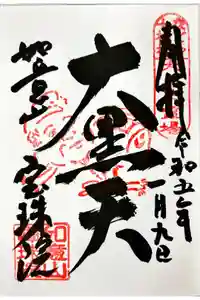 奉拝
令和五年
一月九日
大黒天
宝珠院